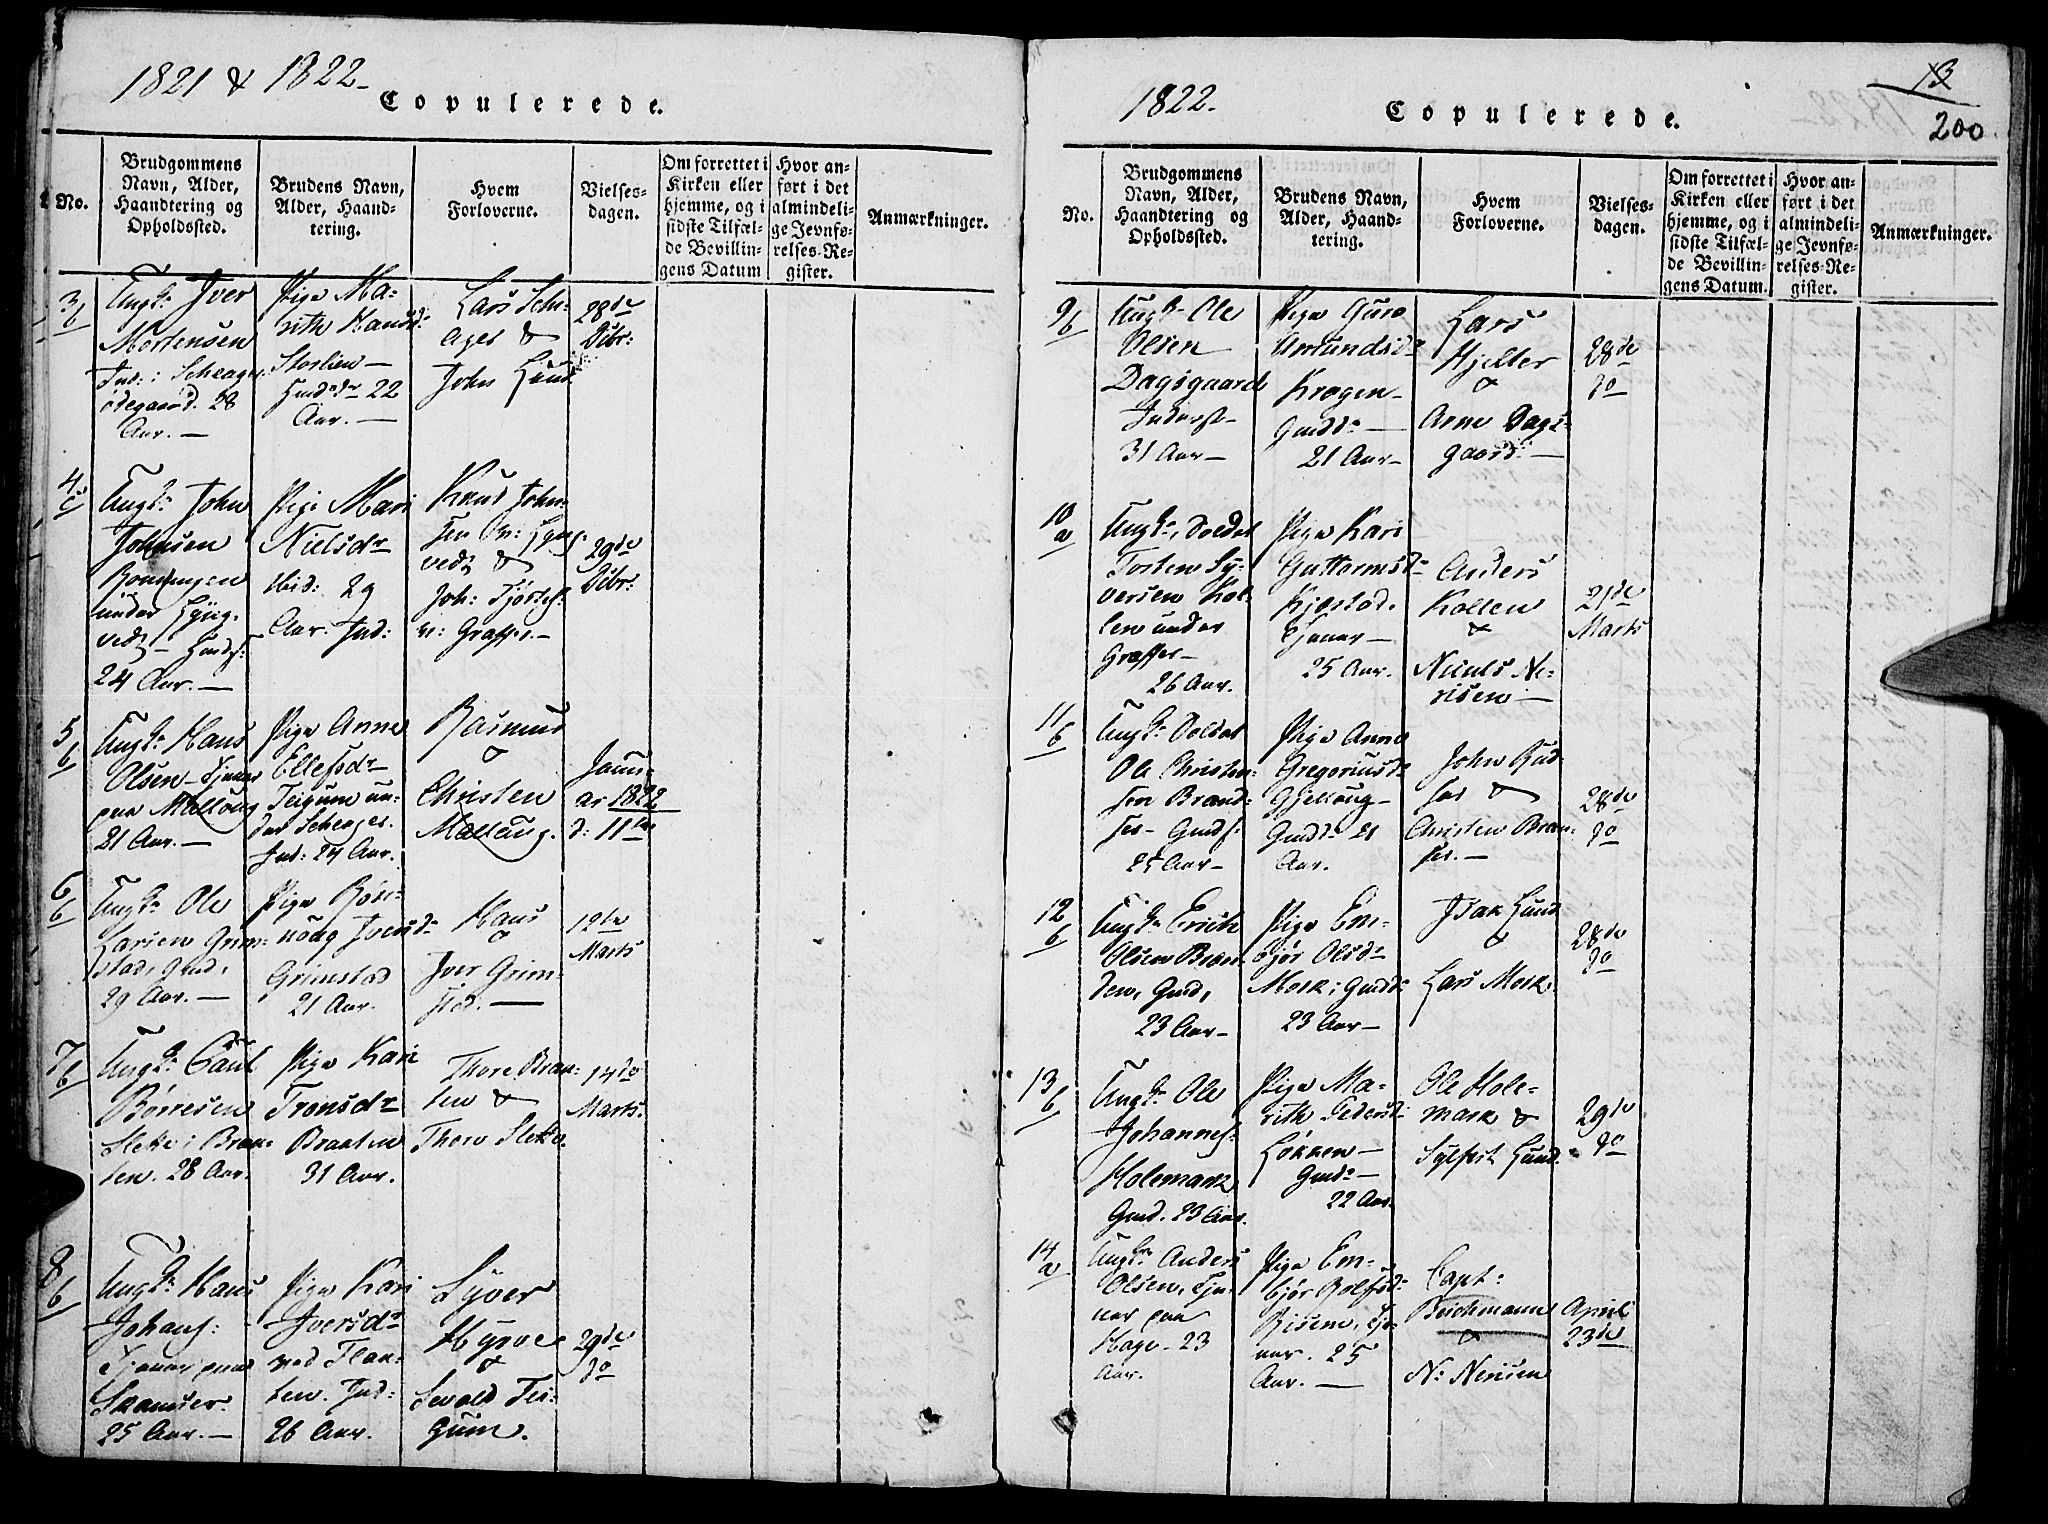 1821 & 1822.
Copulerede.
No.
Brudgommens
Navn, Alder,
Haandtering og
Opholdssted.
Brudens Navn,
Alder, Haand-
tering.
Hvem
Forloverne.
Vielses-
dagen.
Om forrettet i
Kirken eller
hjemme, og i
sidste Tilfæl-
de Bevillin-
gens Datum
Hvor an-
ført i det
almindeli-
ge Jevnfø-
relses-Re-
gister.
Anmærkninger.
3/b
Ungk: Iver
Mortensen
Ind: i Scheager
ødegaard. 28
Aar. —
Pige Ma-
rith Hansd:
Storlien —
Gmdsdr 22
Aar. —
Lars Sche-
ager &
John Lund
28de
Dcbr:
4/c
Ungk: John
Johnsen
Rønningen
under Lyng-
vedt
24 Aar. —
Pige Mari
Nielsdr
ibid: 29
Aar. Ind:
Knud John-
sen Lyng-
vedt &
Joh:
v: Graffer. —
29de
Dcbr:
5/b
Ungk: Hans
Olsen Tjener
paa Mellöug
21 Aar. —
Pige Anne
Ellefsdr
Teigum un-
der Scheager.
Ind: 24 Aar.
Rasmus
&
Christen
Mellaug.
Janu-
ar 1822
d: 11te
6/b
Ungk: Ole
Larsen Grim-
stad, Gmd,
29 Aar. —
Pige Røn-
nöug Iversd:
Grimstad
21 Aar.
Hans
&
Iver Grim-
stad. —
12te
Marts
7/b
Ungk: Paul
Börresen
Slette i Braa-
ten. 28 Aar.
Pige Kari
Tronsdr
Braaten
31 Aar.
Thore Braa-
ten &
Thore Slette.
14de
Marts.
8/b
Ungk: Hans
Johans:
Tjener paa
Skamser.
25 Aar. —
Pige Kari
Iversdr
ved Flaa-
ten. Ind:
26 Aar.
Syver
Hyrve
&
Sevald Tei-
gum.
29de
do
1822.
Copulerede.
13
200
No.
Brudgommens
Navn, Alder,
Haandtering og
Opholdssted.
Brudens Navn,
Alder, Haand-
tering.
Hvem
Forloverne.
Vielses-
dagen.
Om forrettet i
Kirken eller
hjemme, og i
sidste Tilfæl-
de Bevillin-
gens Datum.
Hvor an-
ført i det
almindeli-
ge Jevnfø-
relses-Re-
gister.
Anmærkninger.
9/b
Ungk: Ole
Olsen
Dagsgaard
Inderst
31 Aar —
Pige Guro
Amundsdr
Krogen
Gmdd: —
21 Aar —
Lars
Hjelter
&
Arne Dags-
gaard. —
28de
do
10/a
Ungk: Soldat
Torsten Sy-
versen Kol-
len under
Graffer —
26 Aar.
Pige Kari
Guttormsdr
Kjæstad.
Tjener —
25 Aar.
Anders
Kollen
&
Niels Ne-
risen —
21de
Marts
11/b
Ungk: Soldat
Ole Christen-
sen Brand-
ser — Gmds:
25 Aar —
Pige Anne
Gregoriusdr
Gjellöug —
Gmdd: 21
Aar.
John Rud-
ser &
Christen Bran-
ser. —
28de
do
12/b
Ungk: Erich
Olsen
Gmd,
23 Aar —
Pige Em-
bjør Olsdr
Mork; Gmdd:
23 Aar —
Isak Lund
&
Lars Mork.
28de
do
13/b
Ungk: Ole
Johannes:
Holemark
Gmd. 23 Aar.
Pige Ma-
rith Pedersd:
Løkken —
Gmdr —
22 Aar.
Ole Hole-
mark &
Sylfest Lund.
29de
do
14/a
Ungk: Anders
Olsen, Tje-
ner paa
Hage. 23
Aar.
Pige Em-
bjør Rolfsd:
Risem, Tje-
ner. 25
Aar. —
Capt:
Beichmann
&
N: Nerisen
April
23de